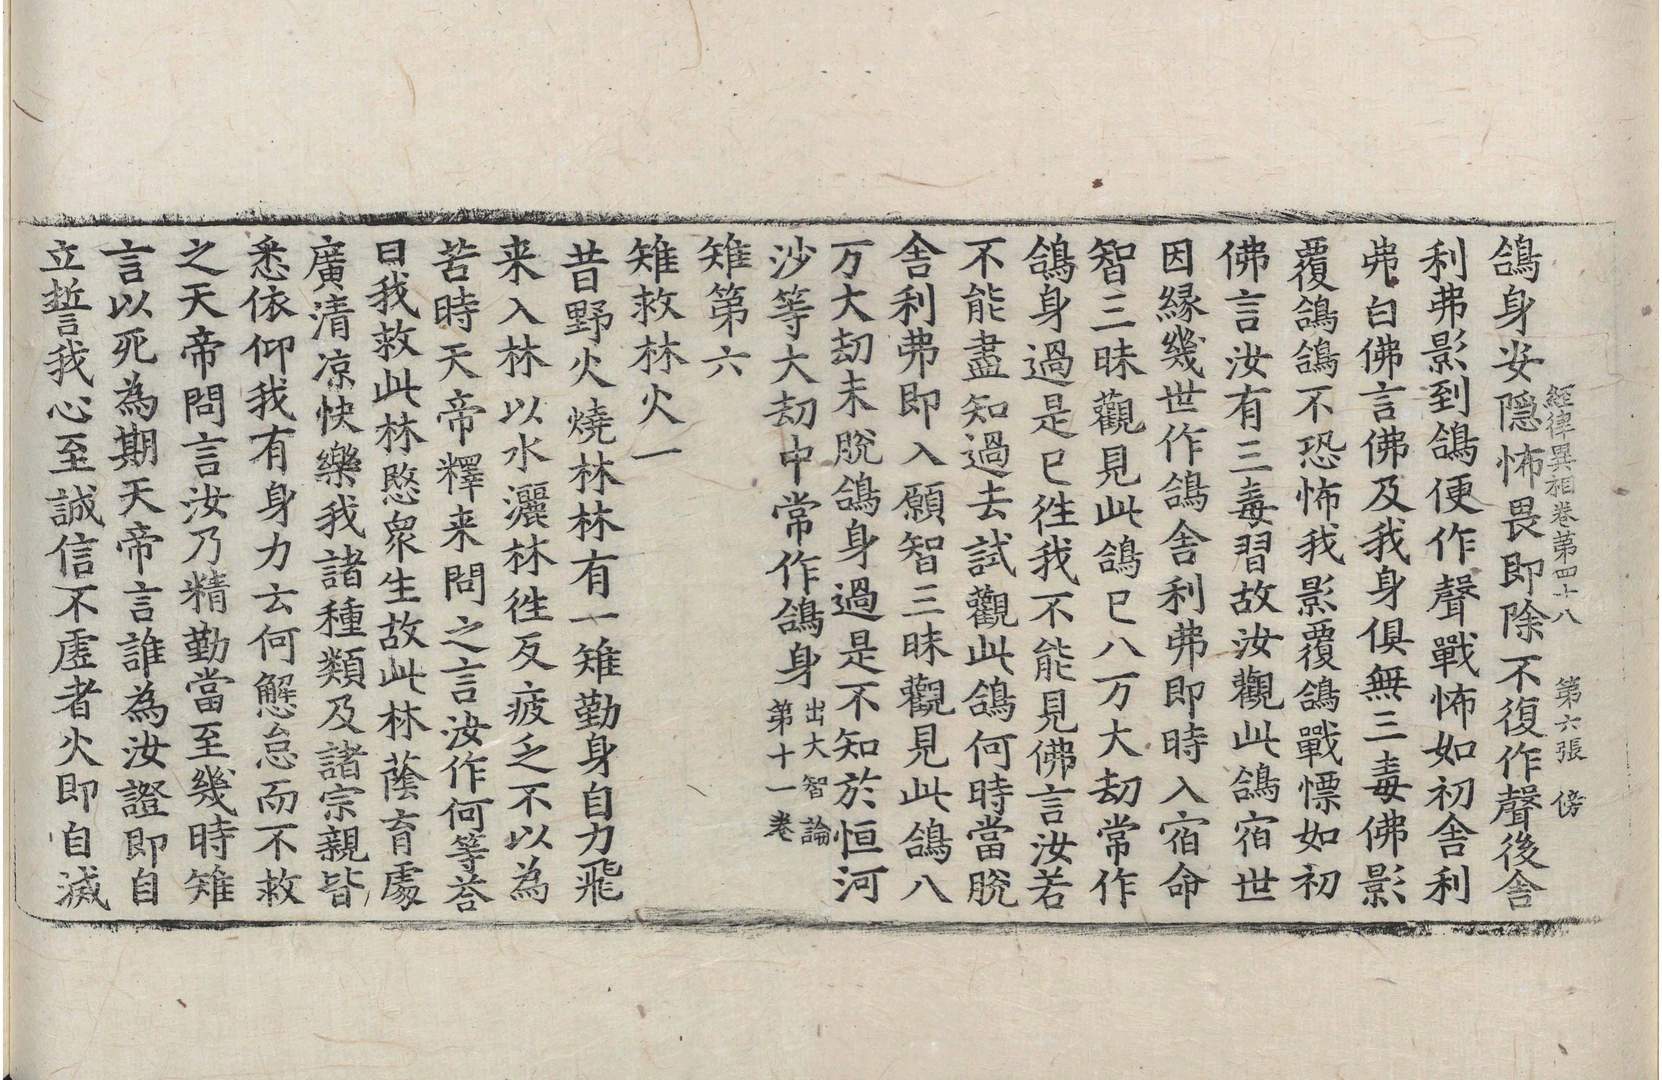 經律異相卷第四十八 第六張 傍
鴿身安隱怖畏即除不復作聲後舍
利弗影到鴿便作聲戰怖如初舍利
弗白佛言佛及我身俱無三毒佛影
覆鴿鴿不恐怖我影覆鴿戰慓如初
佛言汝有三毒習故汝觀此鴿宿世
因緣幾世作鴿舍利弗即時入宿命
智三昧觀見此鴿已八万大劫常作
鴿身過是已徃我不能見佛言汝若
不能盡知過去試觀此鴿何時當脫
舍利弗即入願智三昧觀見此鴿八
万大劫未脫鴿身過是不知於恒河
沙等大劫中常作鴿身出大智論第十一卷
雉第六
雉救林火一
昔野火燒林林有一雉勤身自力飛
来入林以水灑林徃反疲乏不以為
苦時天帝釋来問之言汝作何等荅
曰我救此林愍衆生故此林蔭育處
廣清凉快樂我諸種類及諸宗親皆
悉依仰我有身力云何懈怠而不救
之天帝問言汝乃精勤當至幾時雉
言以死為期天帝言誰為汝證即自
立誓我心至誠信不虛者火即自滅